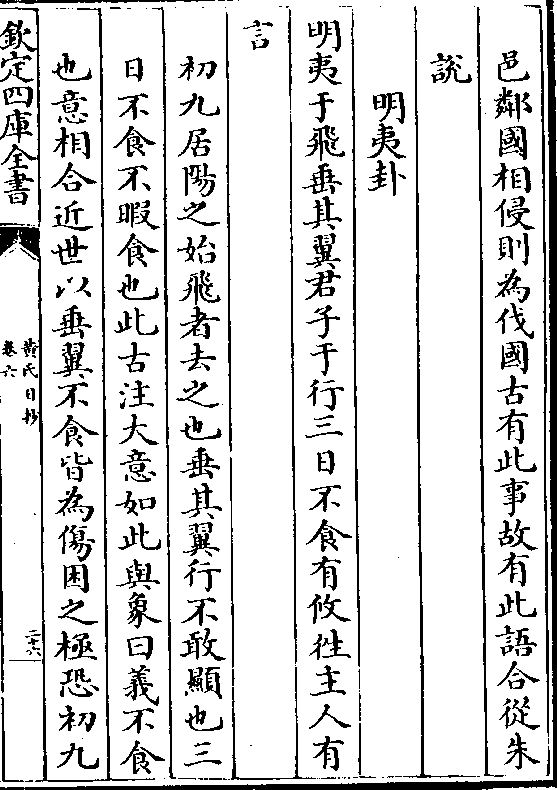 邑鄰國相侵則為伐國古有此事故有此語合從朱
說
明夷卦
明夷于飛垂其翼君子于行三日不食有攸往主人有
言
初九居陽之始飛者去之也垂其翼行不敢顯也三
日不食不暇食也此古注大意如此與象曰義不食
也意相合近世以垂翼不食皆為傷困之極恐初九
欽定四庫全書
黃氏日抄
卷六
二十六